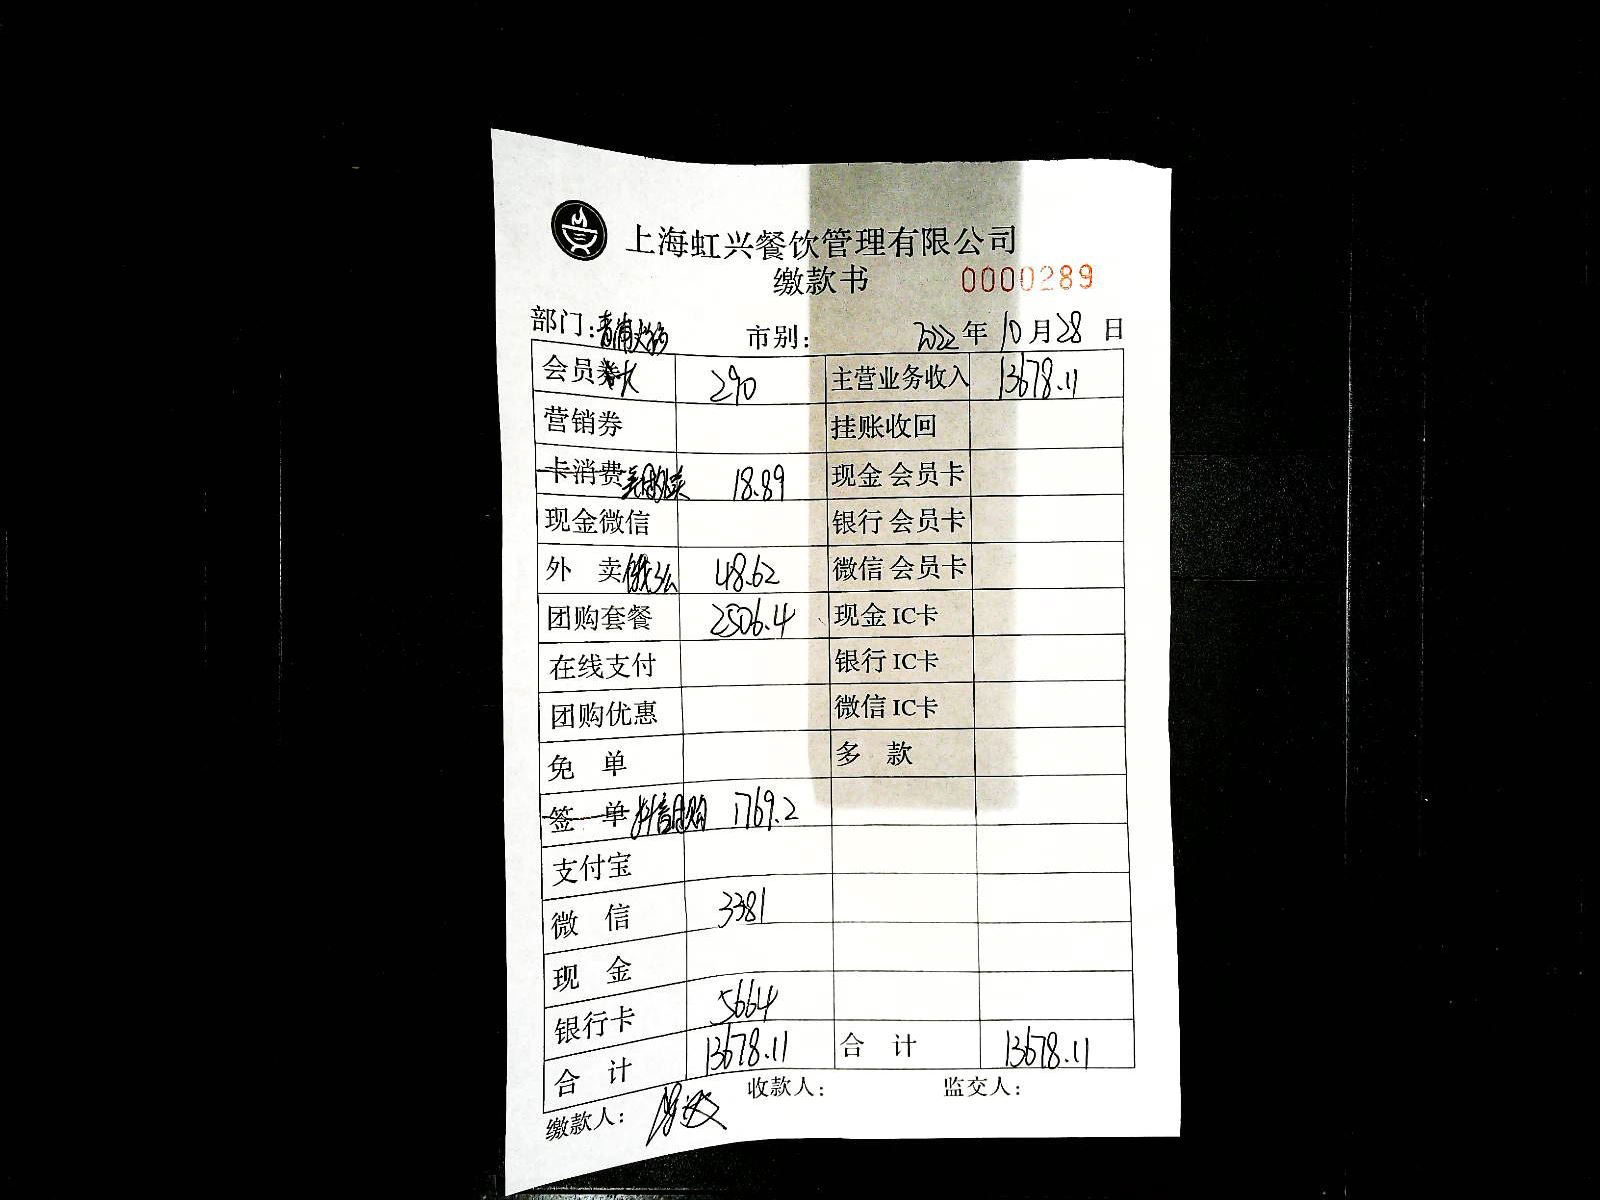 上海虹兴餐饮管理有限公司
缴款书 0000289
部门:青浦 市别: 2022年10月28日
会员 290 主营业务收入 13678.11
营销券 挂账收回
卡消费 美团外卖 18.89 现金 会员卡
现金微信 银行 会员卡
外 卖 饿了么 48.62 微信 会员卡
团购套餐 2506.4 现金 IC卡
在线支付 银行 IC卡
团购优惠 微信 IC卡
免 单 多 款
签 单 抖音团购 1769.2
支付宝
微 信 3381
现 金
银行卡 5664
合 计 13678.11 合 计 13678.11
缴款人: 收款人: 监交人: